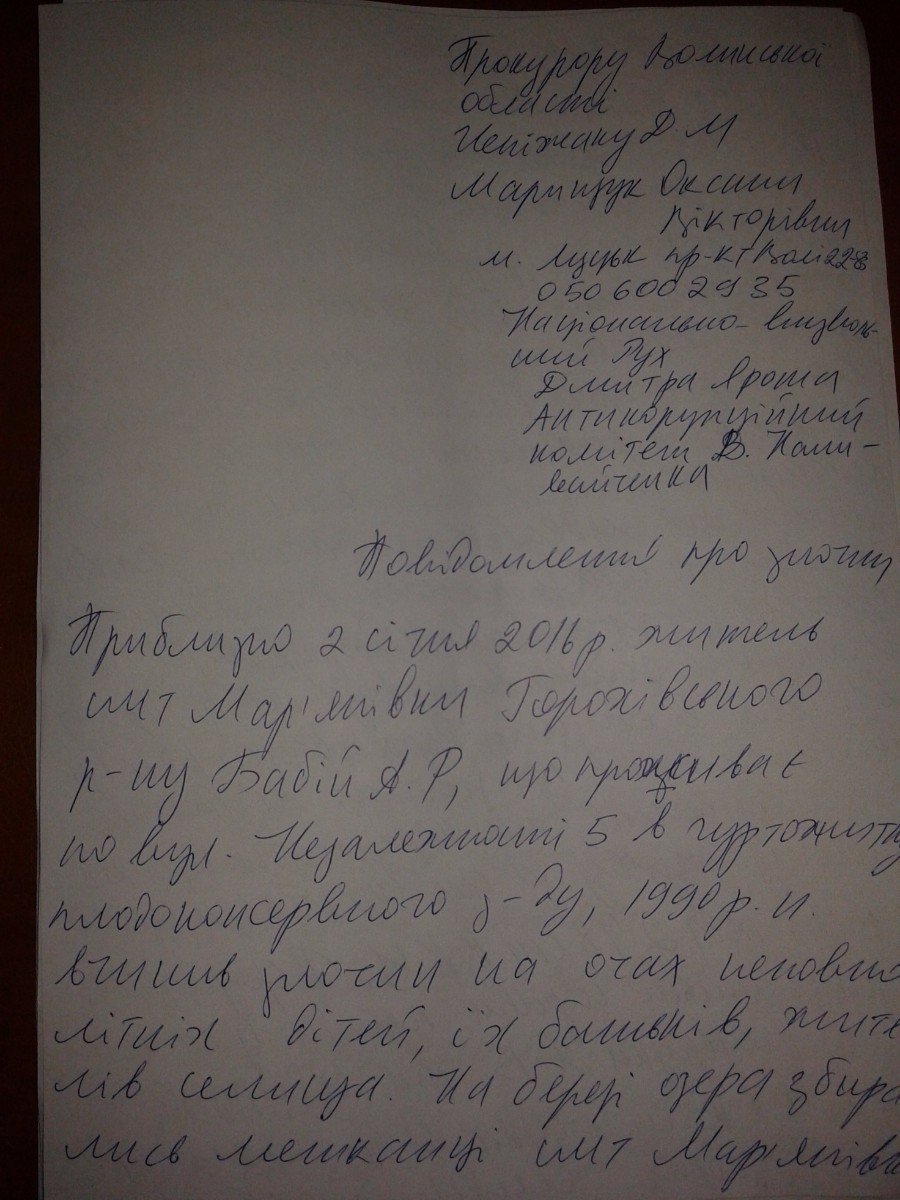 Прокурору Волинської
області
Непіжаку Д. М
Марищук Оксани
Вікторівни
м. Луцьк пр-кт Волі 22-8
050 600 29 35
Національно-визволь-
ний Рух
Дмитра Яроша
Антикорупційний
комітет В. Нали-
вайченка
Повідомлення про злочин
Приблизно 2 січня 2016 р. житель
смт Мар'янівки Горохівського
р-ну Бабій А. Р, що проживає
по вул. Незалежності 5 в гуртожитку
плодоконсервного з-ду, 1990 р. н.
вчинив злочин на очах неповно
літніх дітей, їх батьків, жите
лів селища. На березі озера збира
лись мешканці смт Мар'янівка